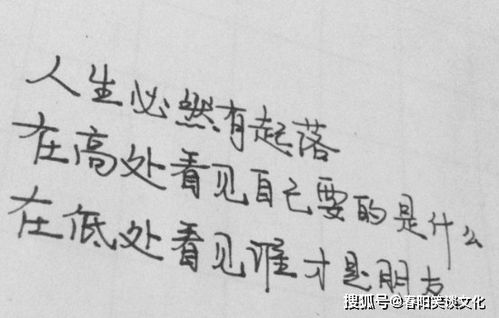 人生必然有起落
在高处看见自己要的是什么
在低处看见谁才是朋友
搜狐号@春阳笑谈文化